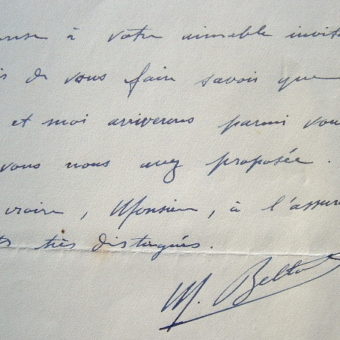 à votre aimable invit
s de vous faire savoir que
et moi arriverons parmi vou
vous nous avez proposée.
croire, Monsieur, à l'assur
ts très distingués.
M.